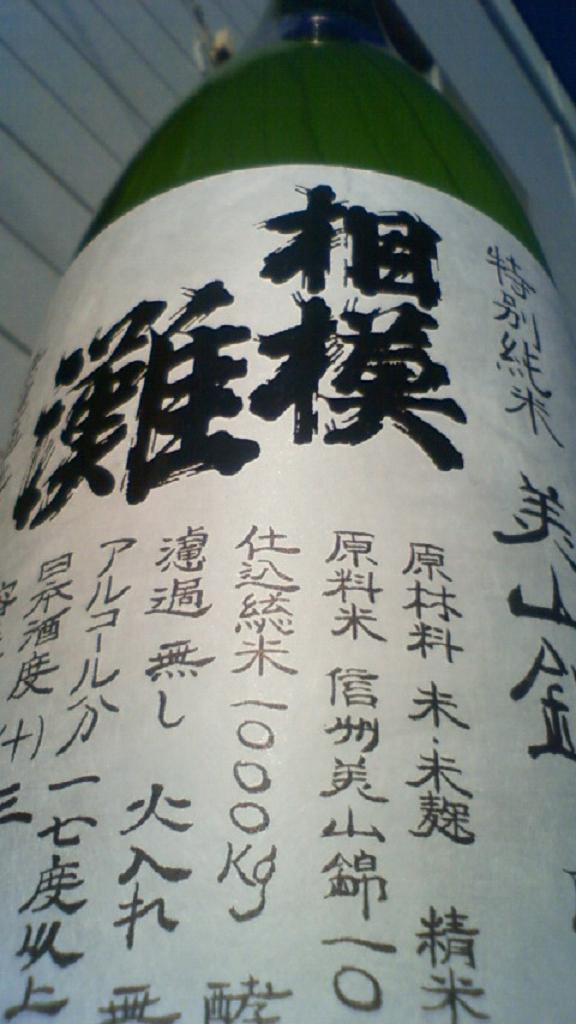 特別純米 美山錦
相模
灘
原材料 米・米麹 精米
原料米 信州美山錦一〇
仕込総米 一〇〇〇Kg 酵
濾過 無し 火入れ 無
アルコール分 一七度以上
日本酒度 (十) 三